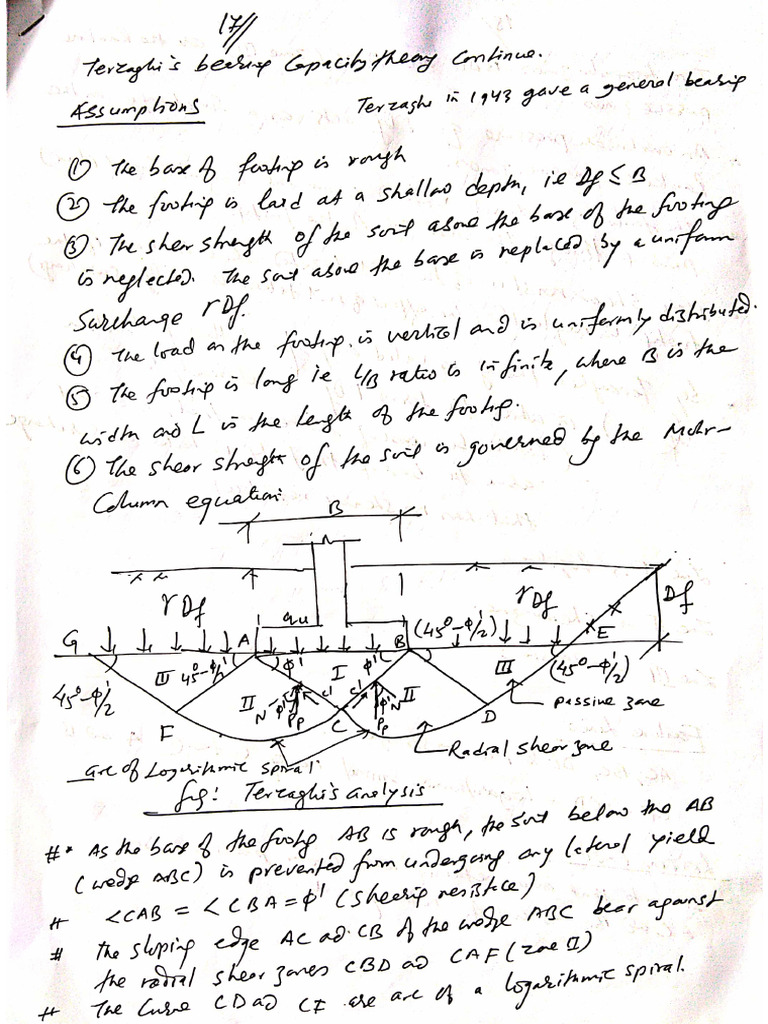 17//
Terzaghi's bearing Capacity theory Continue.
Assumptions
Terzaghi in 1943 gave a general bearing
① The base of footing is rough
② The footing is laid at a shallow depth, ie Df ≤ B
③ The shear strength of the soil above the base of the footing
is neglected. The soil above the base is replaced by a uniform
Surcharge rDf.
④ The load on the footing is vertical and is uniformly distributed.
⑤ The footing is long ie L/B ratio is infinite, where B is the
width and L is the length of the footing.
⑥ The shear strength of the soil is governed by the Mohr-
Column equation.
B
rDf
rDf
Df
G
A
qu
B
(45°-φ'/2)
E
45°-φ'/2
III
45°-φ'/2
φ'
I
φ'
III
(45°-φ'/2)
II
N
φ'
Pp
c'
c'
C
Pp
φ'
N
II
D
passive zone
F
Radial shear zone
arc of Logarithmic spiral
fig: Terzaghi's analysis
#* As the base of the footing AB is rough, the soil below the AB
(wedge ABC) is prevented from undergoing any lateral yield
# <CAB = <CBA = φ' (shearing resistance)
# The sloping edge AC ad CB of the wedge ABC bear against
the radial shear zones CBD ad CAF (zone II)
# The Curve CD ad CF are arc of a logarithmic spiral.